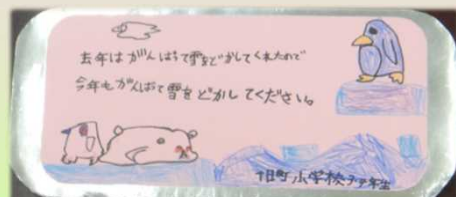 去年はがんばって雪をどかしてくれたので
今年もがんばて雪をどかしてください。
十日町小学校 年生